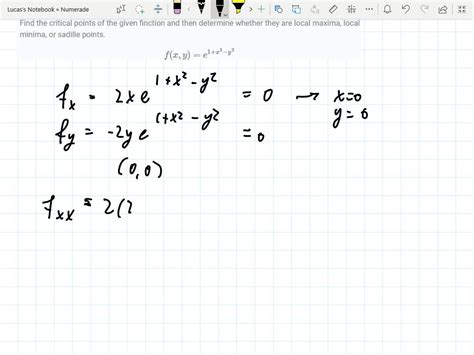 Lucas's Notebook » Numerade
Find the critical points of the given finction and then determine whether they are local maxima, local
minima, or sadille points.
f(x, y) = e^{1+x²−y²}
f_x = 2xe^{1+x²−y²} = 0 → x=0
y=0
f_y = -2ye^{1+x²−y²} = 0
(0,0)
f_{xx} = 2(